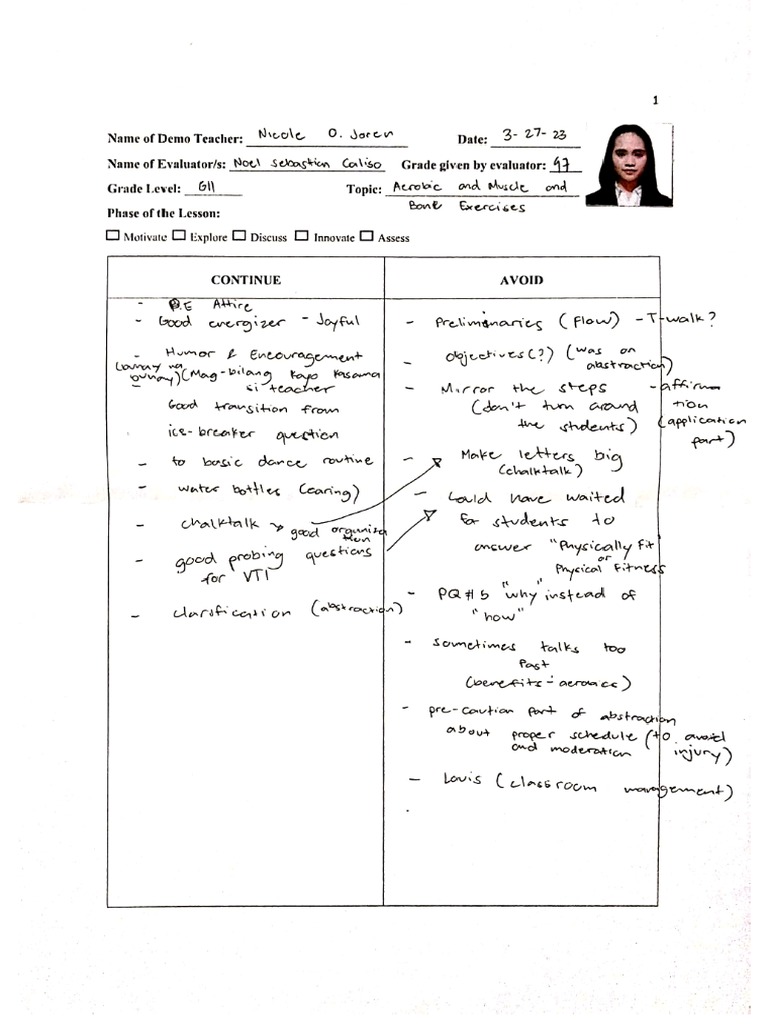 1
Name of Demo Teacher: Nicole O. Joren Date: 3-27-23
Name of Evaluator/s: Noel Sebastian Caliso Grade given by evaluator: 97
Grade Level: G11 Topic: Aerobic and Muscle and
Bone Exercises
Phase of the Lesson:
Motivate Explore Discuss Innovate Assess
CONTINUE
- P.E Attire
- Good energizer - Joyful
- Humor & Encouragement
(Mag-bilang kayo kasama
si teacher
Good transition from
ice-breaker question
- to basic dance routine
- water bottles (caring)
- chalktalk → good organiza
tion
- good probing questions
for VTI
- clarification (abstraction)
AVOID
- Preliminaries (flow) - T-walk?
- objectives(?) (was on
abstraction)
- Mirror the steps - affirma
(don't turn around tion
the students) (application
part)
- Make letters big
(chalktalk)
- Could have waited
for students to
answer "Physically Fit
or
Physical Fitness
- PQ # 5 "why" instead of
"how"
- sometimes talks too
fast
(benefits - aerobics)
- pre-caution part of abstraction
about proper schedule (to avoid
and moderation injury)
- Louis (classroom management)